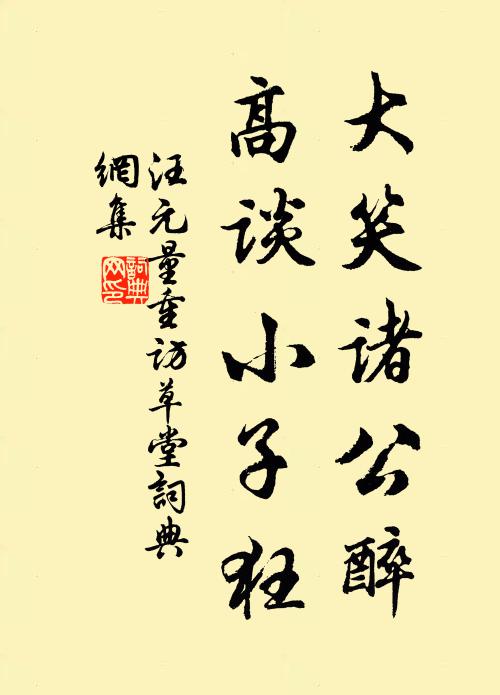 大笑诸公醉
高谈小子狂
汪元量重访草堂詞典
網集
詞典網印